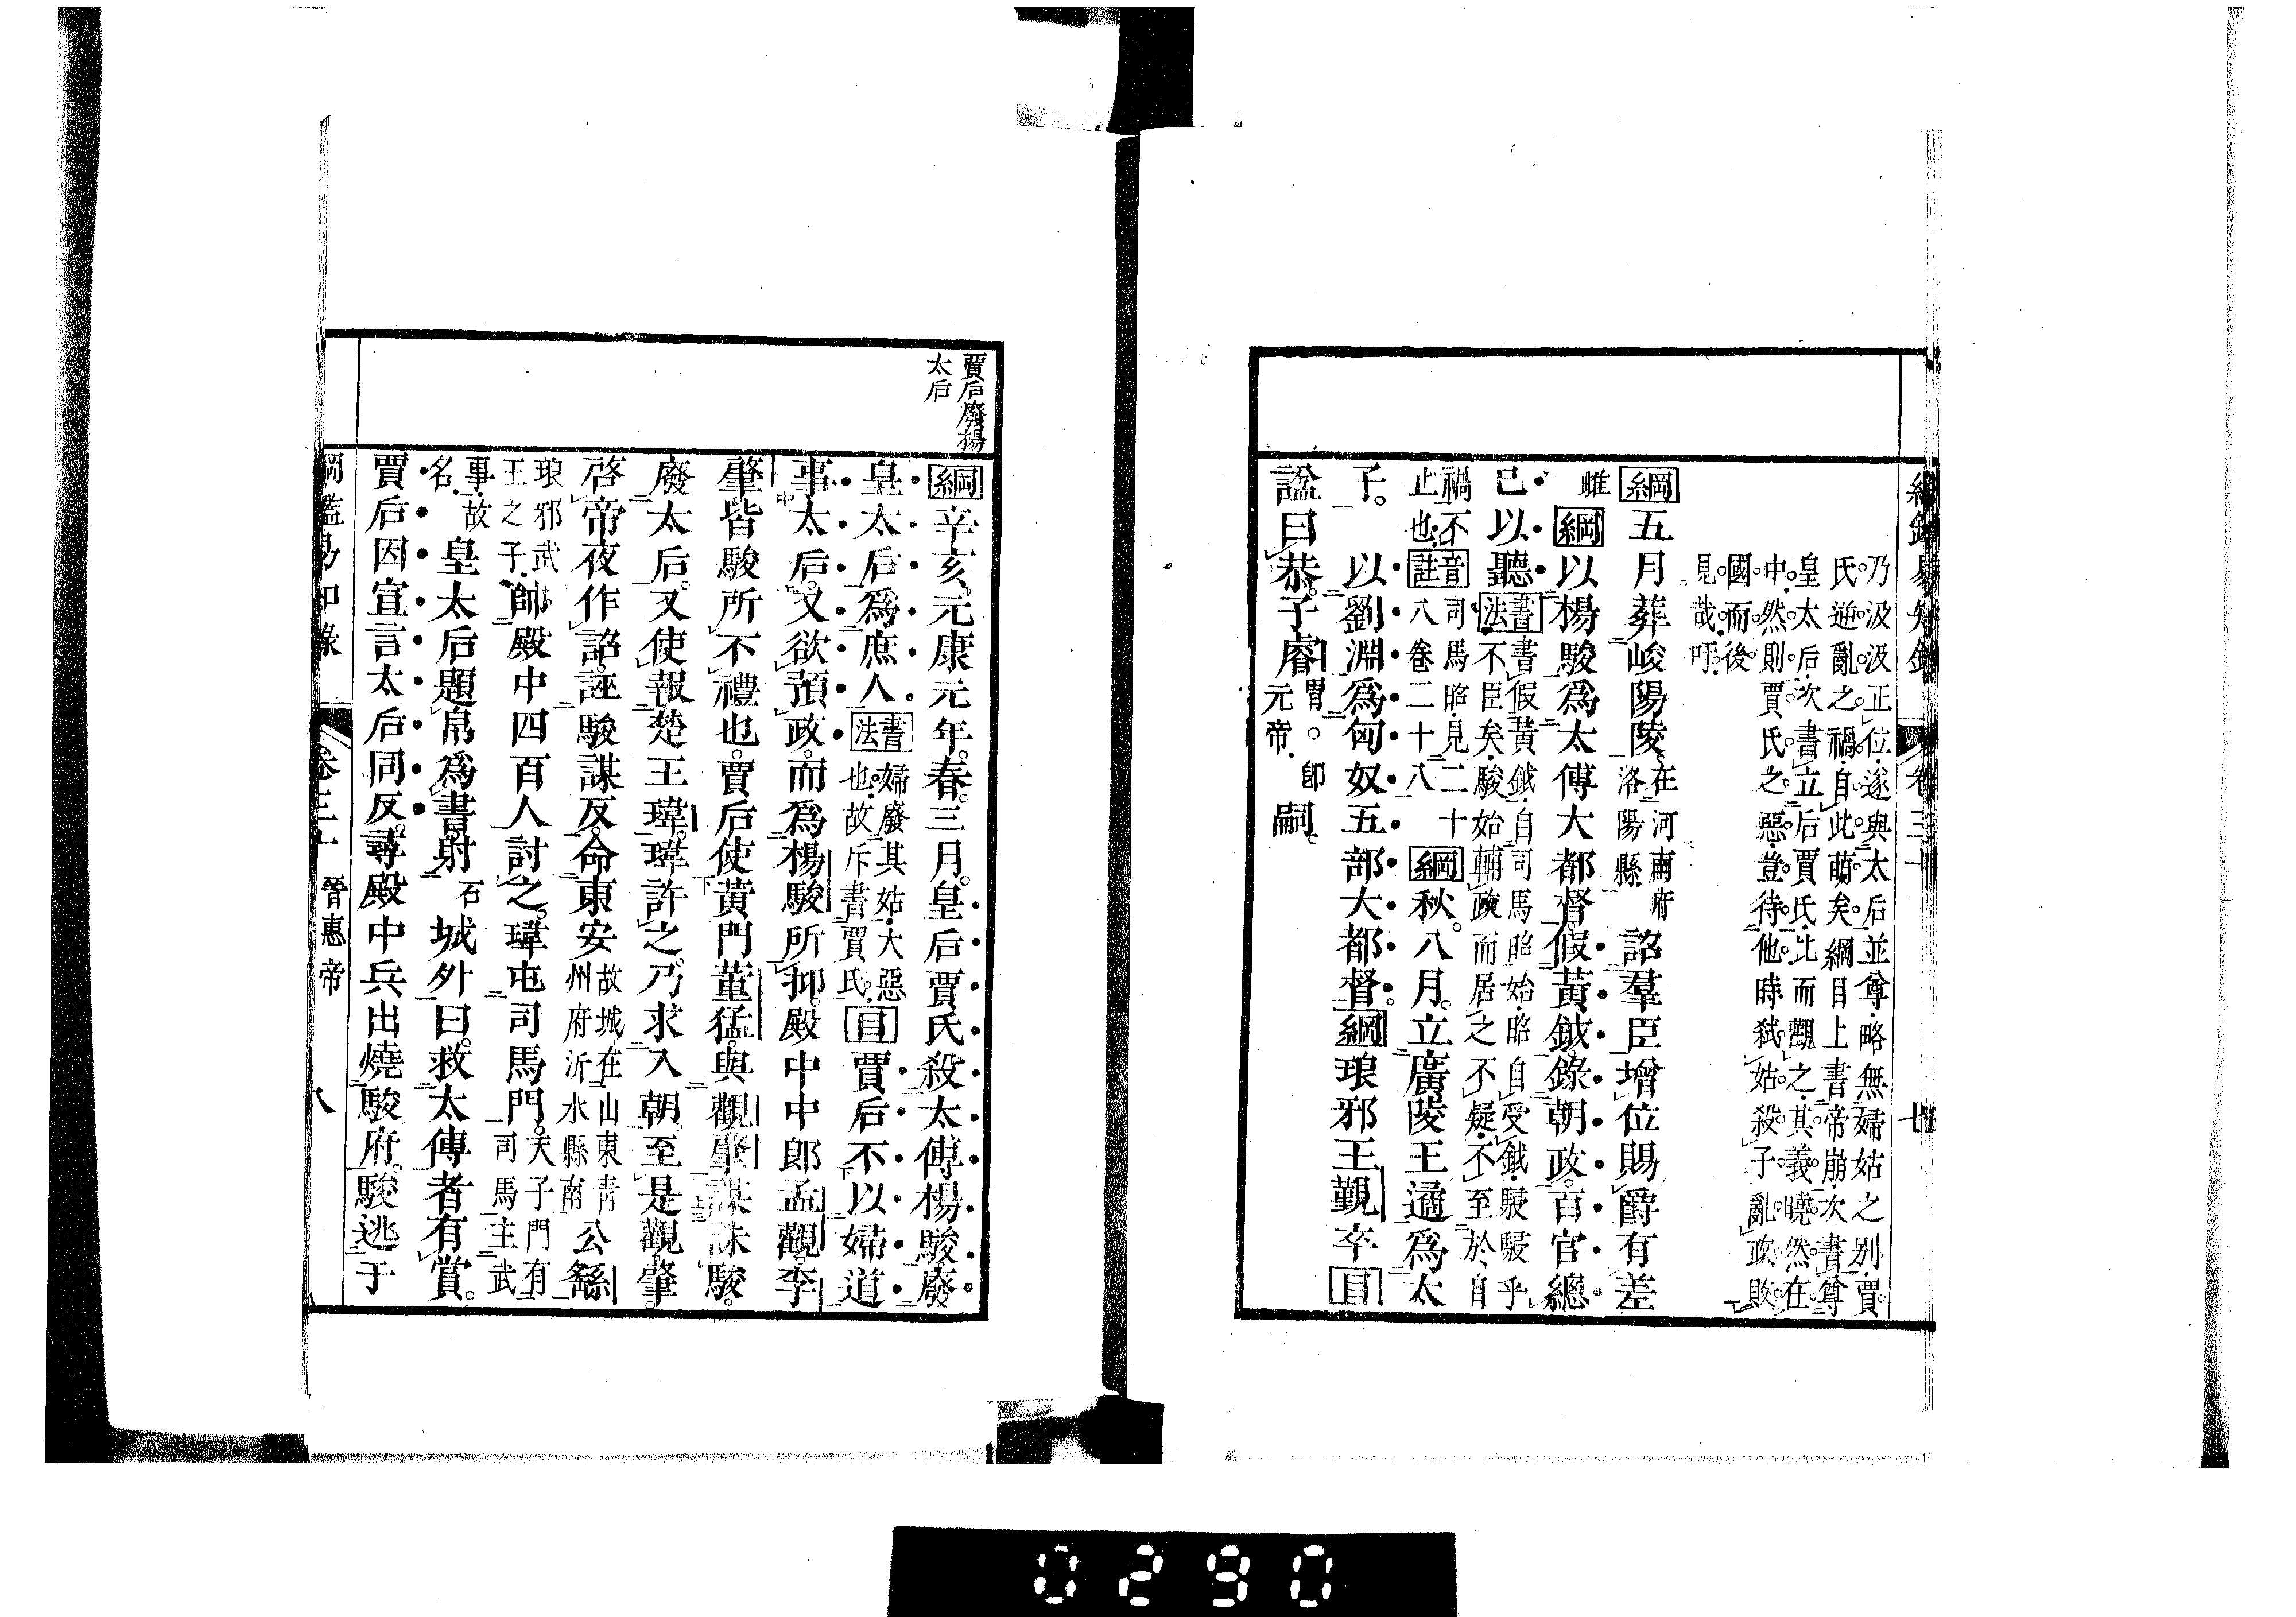 綱鑑易知錄 卷三十 七
乃汲汲正位遂與太后並尊略無婦姑之別賈
氏逆亂之禍自此萌矣綱目上書帝崩次書尊
皇太后次書立后賈氏比而觀之其義曉然在
中然則賈氏之惡豈待他時弒姑殺子亂政敗
國而後
見哉吁
綱五月葬峻陽陵在河南府
洛陽縣詔羣臣增位賜爵有差
雌綱以楊駿爲太傅大都督假黃鉞錄朝政百官總
已以聽書法書假黃鉞自司馬昭始昭自受鉞駸駸乎
不臣矣駿始輔政而居之不疑不至於自
禍不
止也音註司馬昭見二十
八卷二十八綱秋八月立廣陵王遹爲太
子以劉淵爲匈奴五部大都督綱琅邪王覲卒目
諡曰恭子睿胃卽
元帝嗣
賈后廢楊
太后
綱辛亥元康元年春三月皇后賈氏殺太傅楊駿廢
皇太后爲庶人書法婦廢其姑大惡
也故斥書賈氏目賈后不以婦道
事太后又欲預政而爲楊駿所抑殿中中郎孟觀李
肇皆駿所不禮也賈后使黃門董猛與觀肇謀誅駿
廢太后又使報楚王瑋瑋許之乃求入朝至是觀肇
啓帝夜作詔誣駿謀反命東安故城在山東青
州府沂水縣南公繇
琅邪武
王之子帥殿中四百人討之瑋屯司馬門天子門有
司馬主武
事故
名皇太后題帛爲書射石城外曰救太傅者有賞
賈后因宣言太后同反尋殿中兵出燒駿府駿逃于
綱鑑易知錄 卷三十 晉惠帝 八
0290